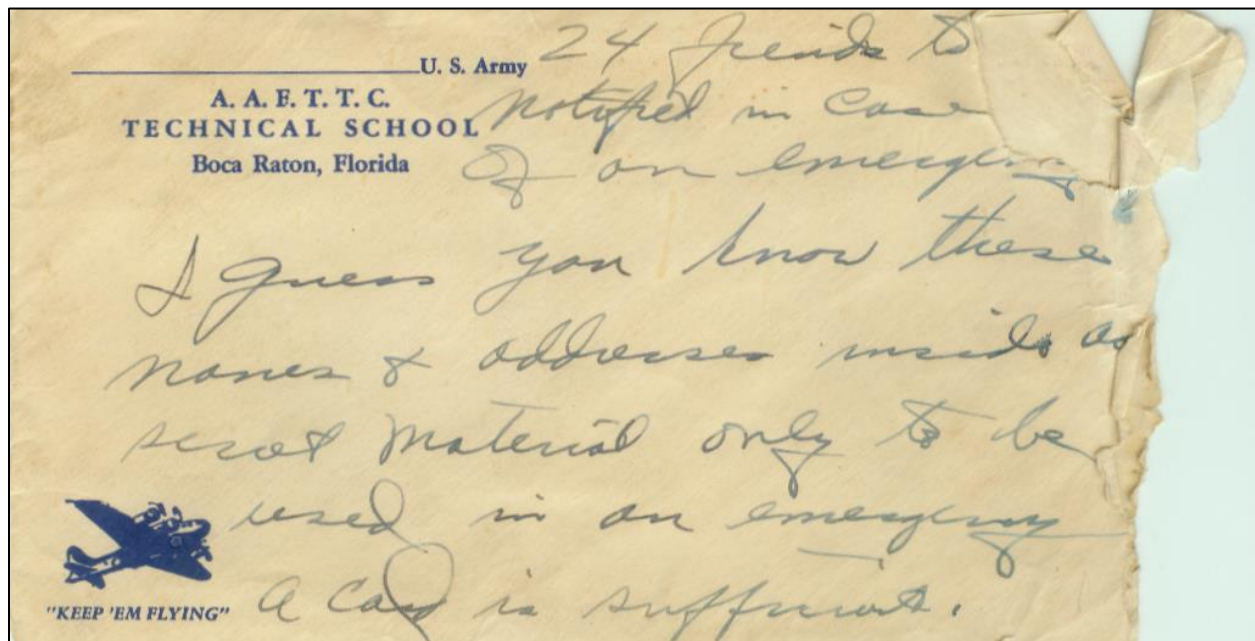 U. S. Army
A. A. F. T. T. C.
TECHNICAL SCHOOL
Boca Raton, Florida
24 freinds to
notified in case
of an emergency
I guess you know these
names & addresses inside as
secret material only to be
used in an emergency
A card is sufficient.
"KEEP 'EM FLYING"